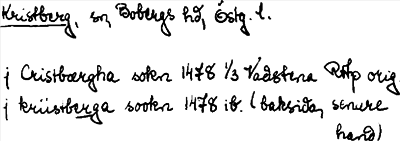 Kristberg, sn, Bobergs hd, Östg. l.
j Cristbærgha sokn 1478 1/3 Vadstena Rthp orig.
j kriistberga sookn 1478 ib. (baksida, senere
hand)